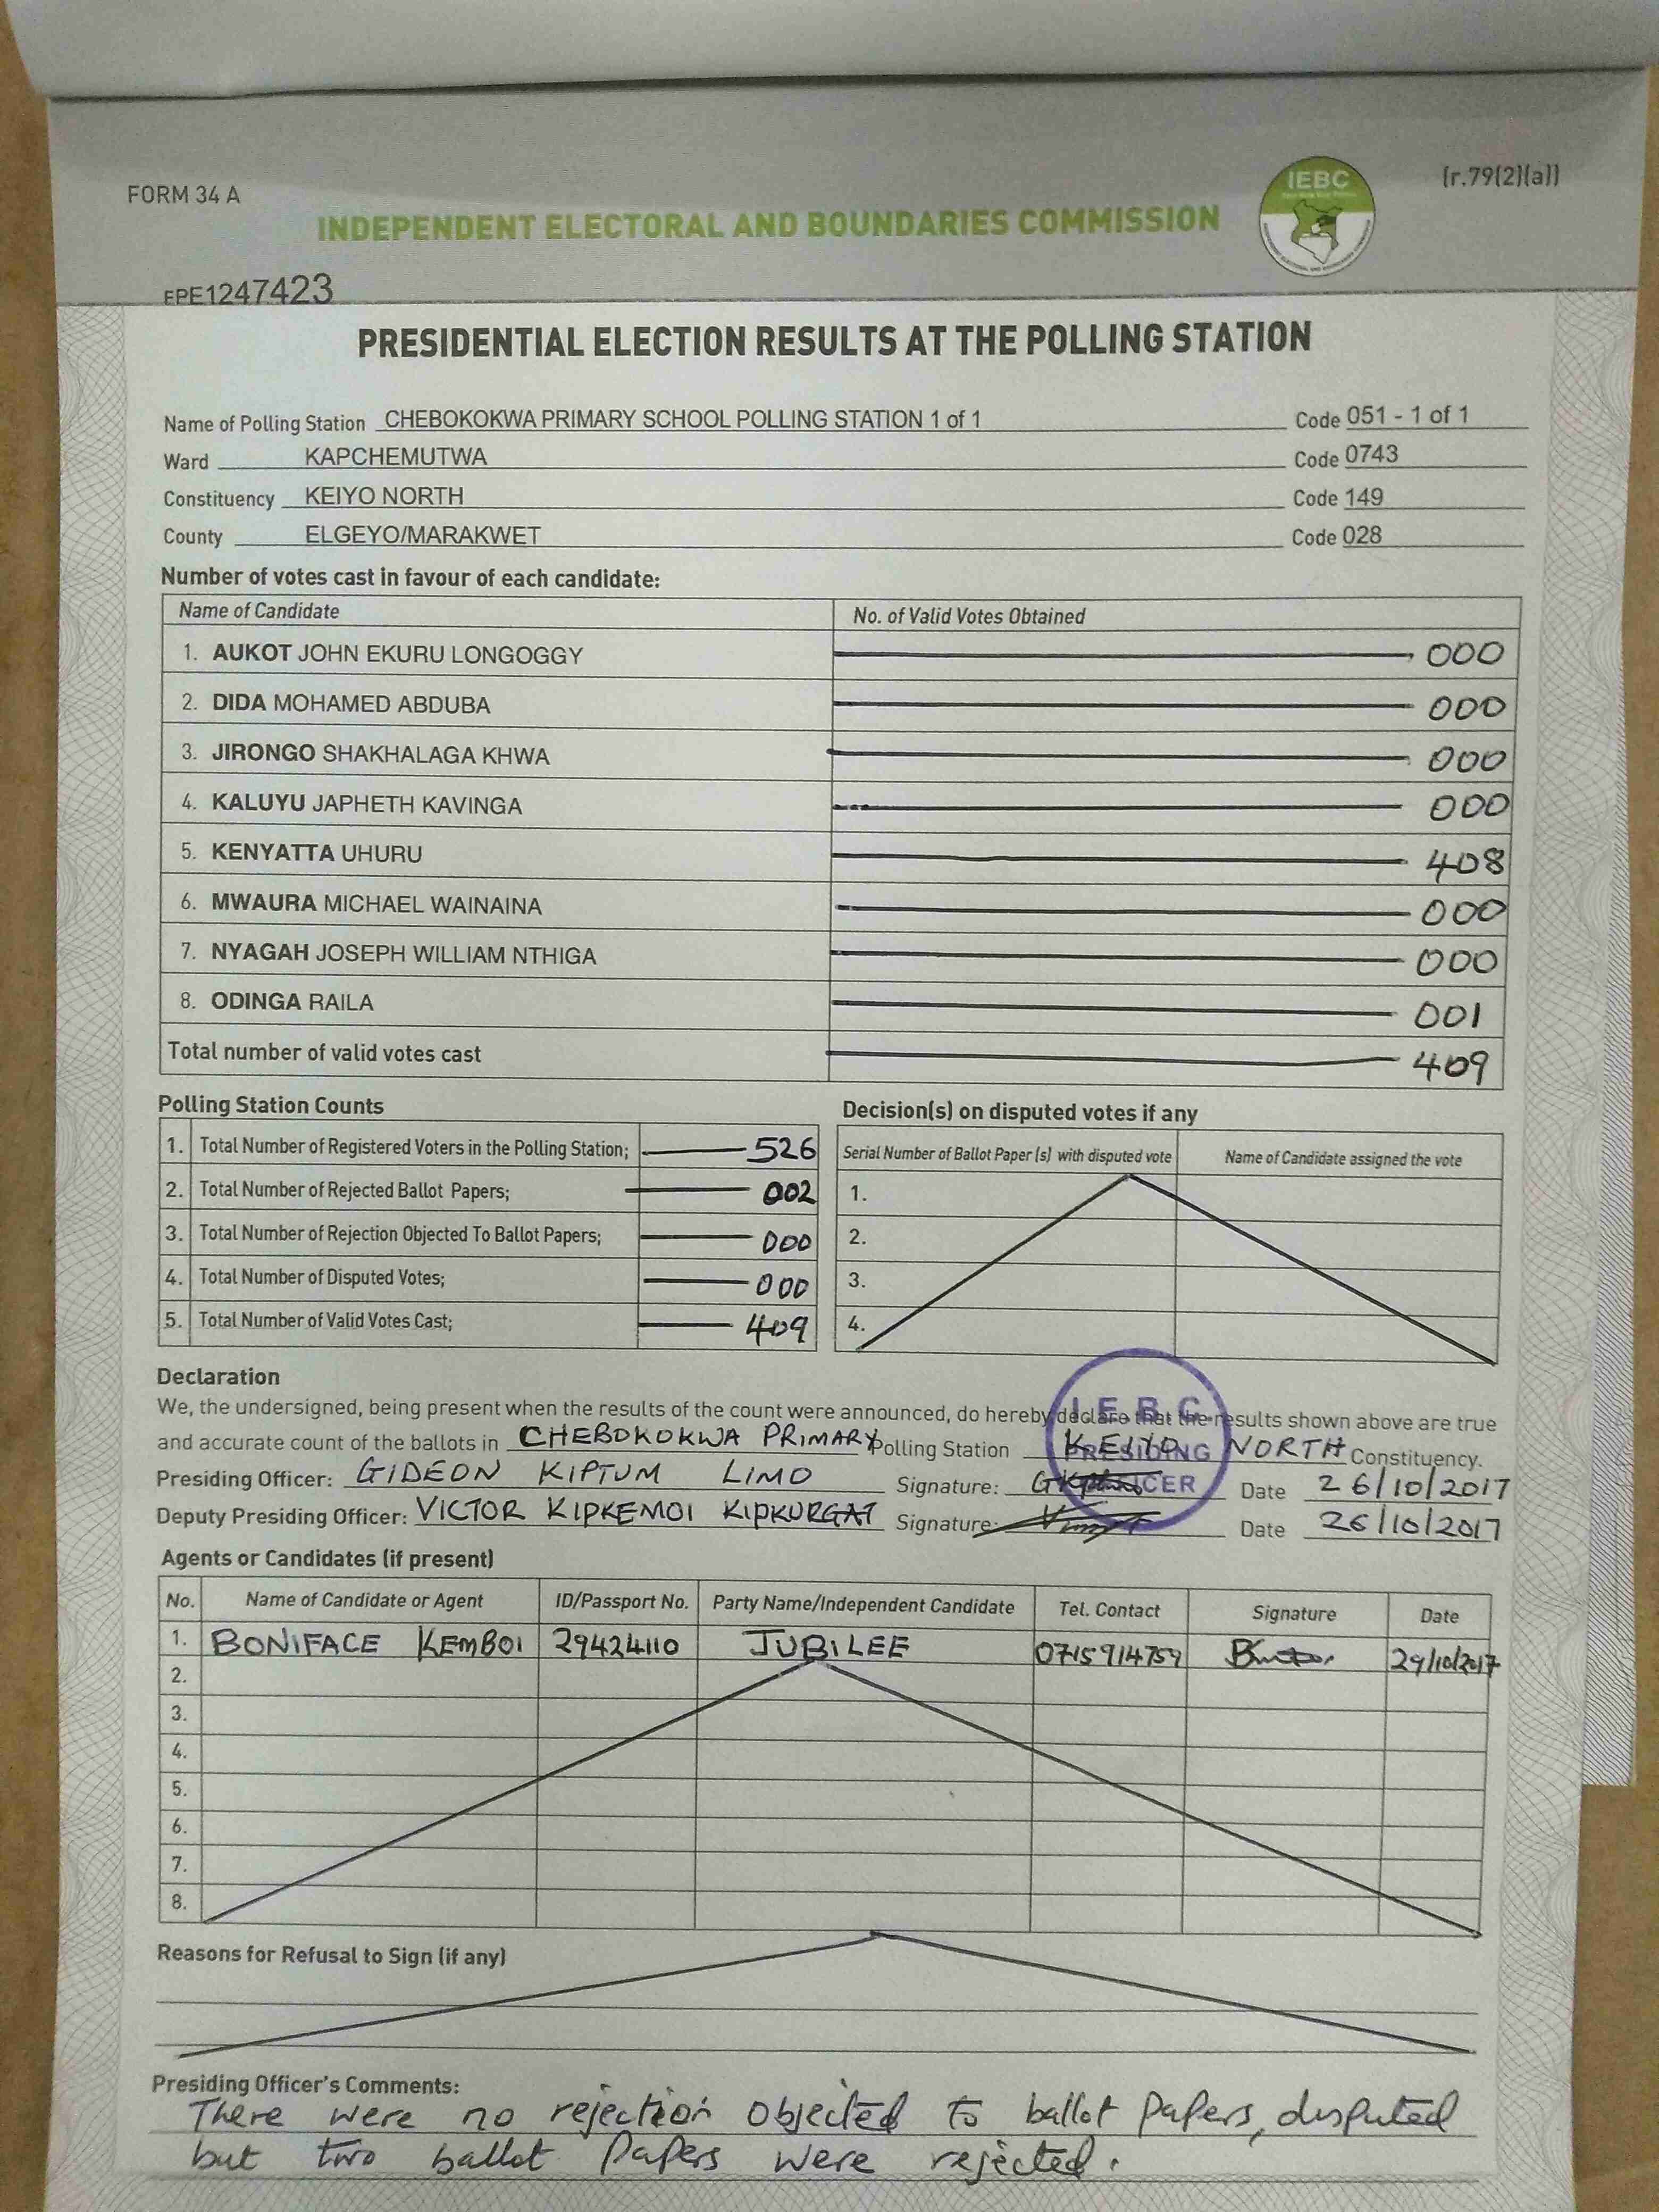 FORM 34 A
(r.79(2)(a))
IEBC
INDEPENDENT ELECTORAL AND BOUNDARIES COMMISSION
EPE1247423
PRESIDENTIAL ELECTION RESULTS AT THE POLLING STATION
Name of Polling Station CHEBOKOKWA PRIMARY SCHOOL POLLING STATION 1 of 1 Code 051 - 1 of 1
Ward KAPCHEMUTWA Code 0743
Constituency KEIYO NORTH Code 149
County ELGEYO/MARAKWET Code 028
Number of votes cast in favour of each candidate:
Name of Candidate No. of Valid Votes Obtained
1. AUKOT JOHN EKURU LONGOGGY 000
2. DIDA MOHAMED ABDUBA 000
3. JIRONGO SHAKHALAGA KHWA 000
4. KALUYU JAPHETH KAVINGA 000
5. KENYATTA UHURU 408
6. MWAURA MICHAEL WAINAINA 000
7. NYAGAH JOSEPH WILLIAM NTHIGA 000
8. ODINGA RAILA 001
Total number of valid votes cast 409
Polling Station Counts
1. Total Number of Registered Voters in the Polling Station; 526
2. Total Number of Rejected Ballot Papers; 002
3. Total Number of Rejection Objected To Ballot Papers; 000
4. Total Number of Disputed Votes; 000
5. Total Number of Valid Votes Cast; 409
Decision(s) on disputed votes if any
Serial Number of Ballot Paper (s) with disputed vote Name of Candidate assigned the vote
1.
2.
3.
4.
Declaration
We, the undersigned, being present when the results of the count were announced, do hereby declare that the results shown above are true
and accurate count of the ballots in CHEBOKOKWA PRIMARY Polling Station KEIYO NORTH Constituency.
Presiding Officer: GIDEON KIPTUM LIMO Signature: Date 26/10/2017
Deputy Presiding Officer: VICTOR KIPKEMOI KIPKURGAT Signature: Date 26/10/2017
I.E.B.C.
PRESIDING
OFFICER
Agents or Candidates (if present)
No. Name of Candidate or Agent ID/Passport No. Party Name/Independent Candidate Tel. Contact Signature Date
1. BONIFACE KEMBOI 29424110 JUBILEE 0715914759 29/10/2017
2.
3.
4.
5.
6.
7.
8.
Reasons for Refusal to Sign (if any)
Presiding Officer's Comments:
There were no rejection objected to ballot papers, disputed
but two ballot papers were rejected.